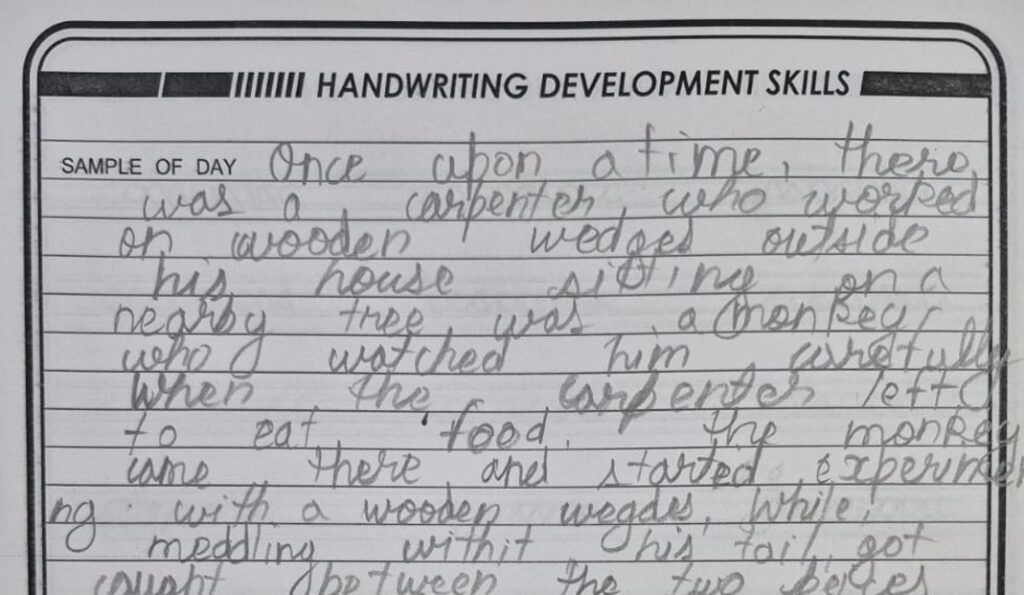 HANDWRITING DEVELOPMENT SKILLS
SAMPLE OF DAY Once upon a time, there
was a carpenter, who worked
on wooden wedges outside
his house sitting on a
nearby tree, was a monkey
who watched him carefully
When the carpenter left
to eat food. the monkey
came there and started experimen
ng with a wooden wegdes, while,
meddling withit his tail got
caught between the two